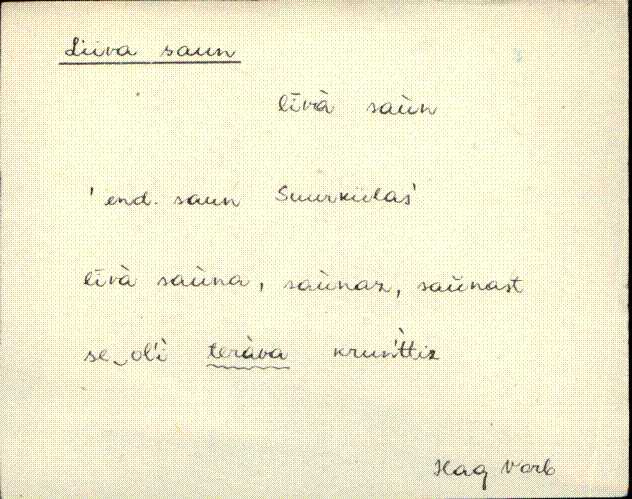 Liiva saun
līvà saùn
' end. saun Suurkülas'
līvà saùna, saùnaz, saŭnast
se‿oľì teràva kruǹttiz
Hag Varb